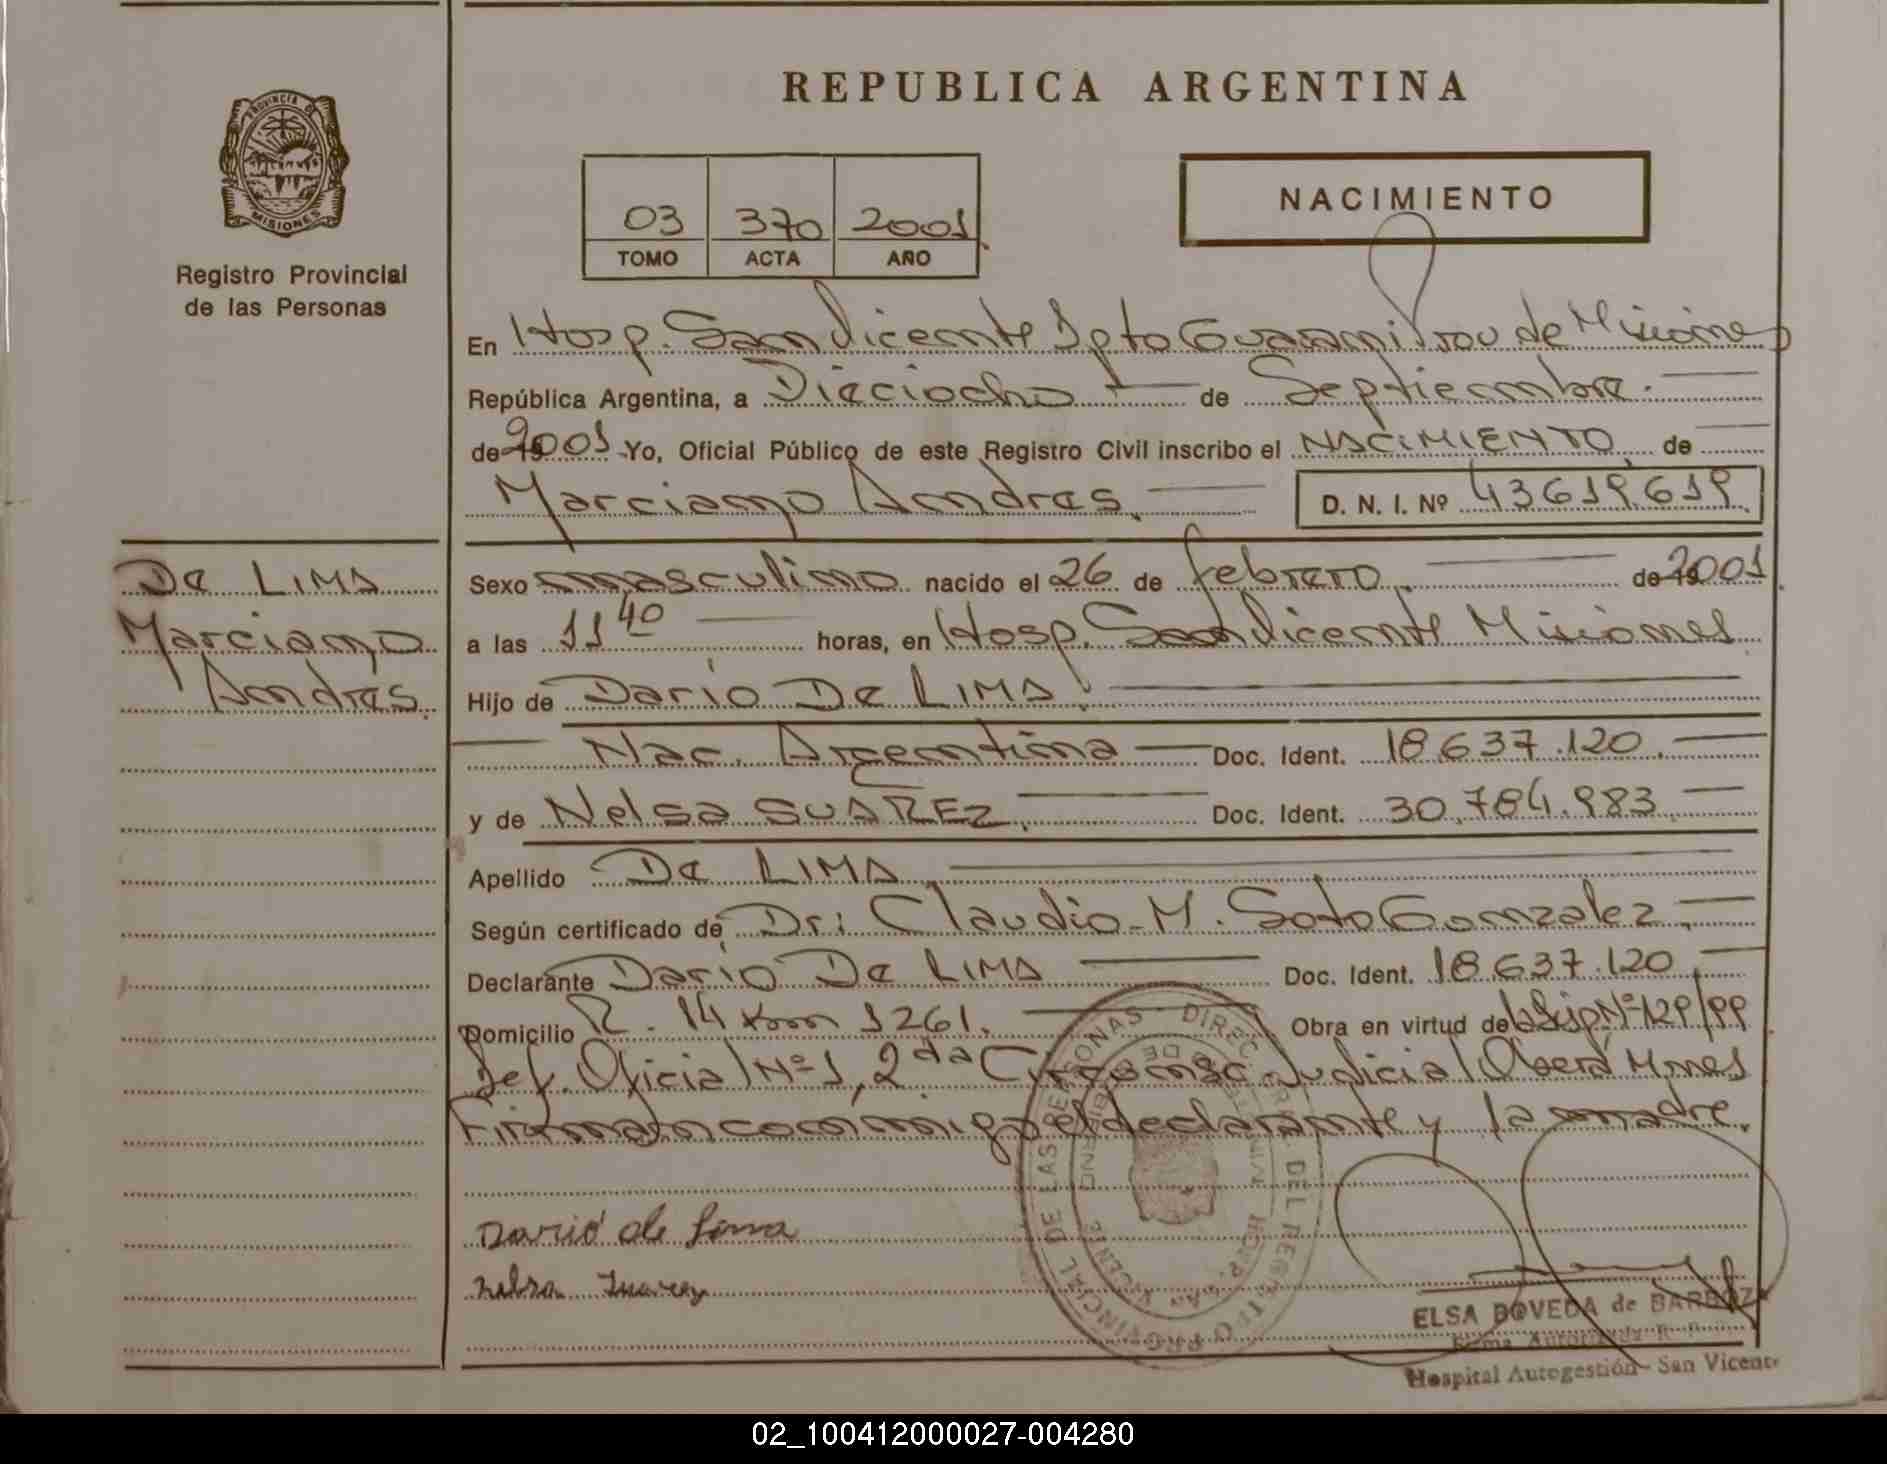 REPUBLICA ARGENTINA
PROVINCIA DE
MISIONES
Registro Provincial
de las Personas
03 370 2001
TOMO ACTA AÑO
NACIMIENTO
En Hosp. San Vicente Dpto Guarani Prov de Misiones
República Argentina, a Dieciocho de Septiembre.
de 2001 Yo, Oficial Público de este Registro Civil inscribo el NACIMIENTO de
Marciano Andres. D. N. I. Nº 43619.619
De LIMA
Marciano
Andres.
Sexo masculino nacido el 26 de febrero. de 2001
a las 11 40 horas, en Hosp. San Vicente Misiones
Hijo de Dario De LIMA.
Nac. Argentina Doc. Ident. 18.637.120.
y de Nelsa SUAREZ. Doc. Ident. 30.784.983
Apellido De LIMA
Según certificado de Dr: Claudio M. Soto Gonzalez.
Declarante Dario De LIMA Doc. Ident. 18.637.120
Domicilio R. 14 Km 1261. Obra en virtud de Nº 129/99
Def. Oficial Nº 1, 2da Circunsc. Judicial Oberá Mnes
Firman conmigo el declarante y la madre.
Dario de Lima
nelsa Suarez
DIREC DEL PROVINCIAL DE LAS PERSONAS
HOSP. SAN VICENTE
ELSA BOVEDA de BARBOZA
Firma Autorizada R. P.
Hospital Autogestión - San Vicente
02_100412000027-004280